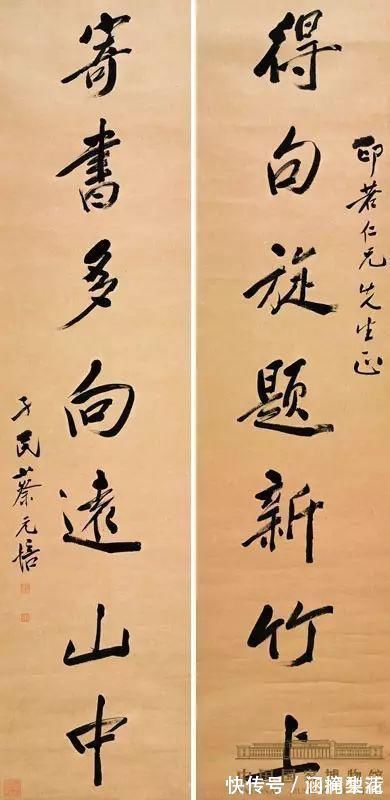 印若仁兄先生正
得句旋題新竹上
寄書多向遠山中
孑民蔡元培
快传号/涵搁梨茬